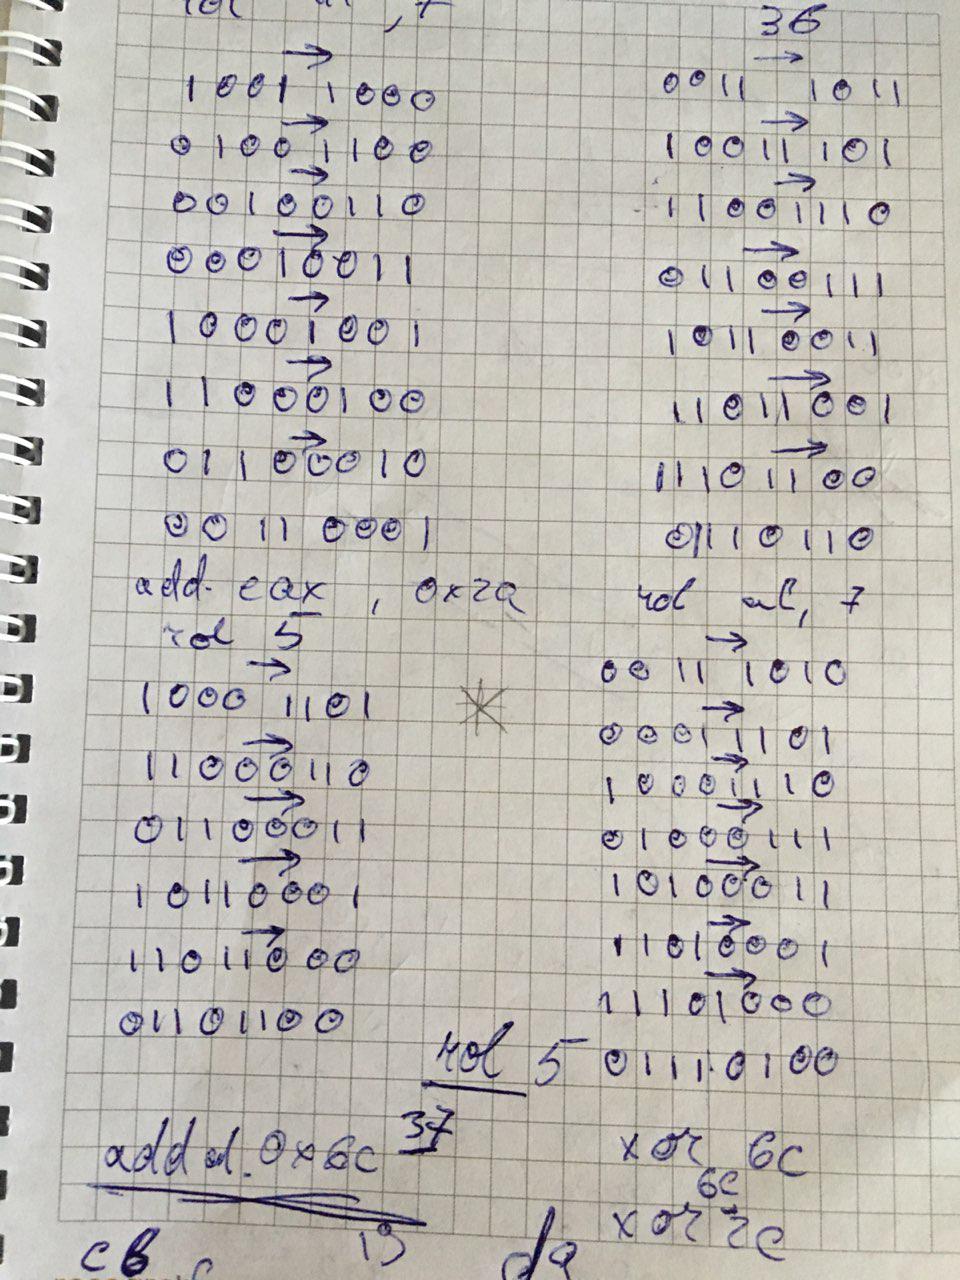 , 7
1001 1000
01001100
00100110
00010011
10001001
11000100
01100010
00110001
add eax, 0x2a
rol 5
1000 1101
11000110
01100011
10110001
11011000
01101100
add d. 0x6c 37
19
cb
36
0011 1011
10011101
11001110
01100111
10110011
11011001
11101100
01110110
rol al, 7
0011 1010
00011101
10001110
01000111
10100011
11010001
11101000
rol 5 01110100
xor 6c
6c
xor 2c
da